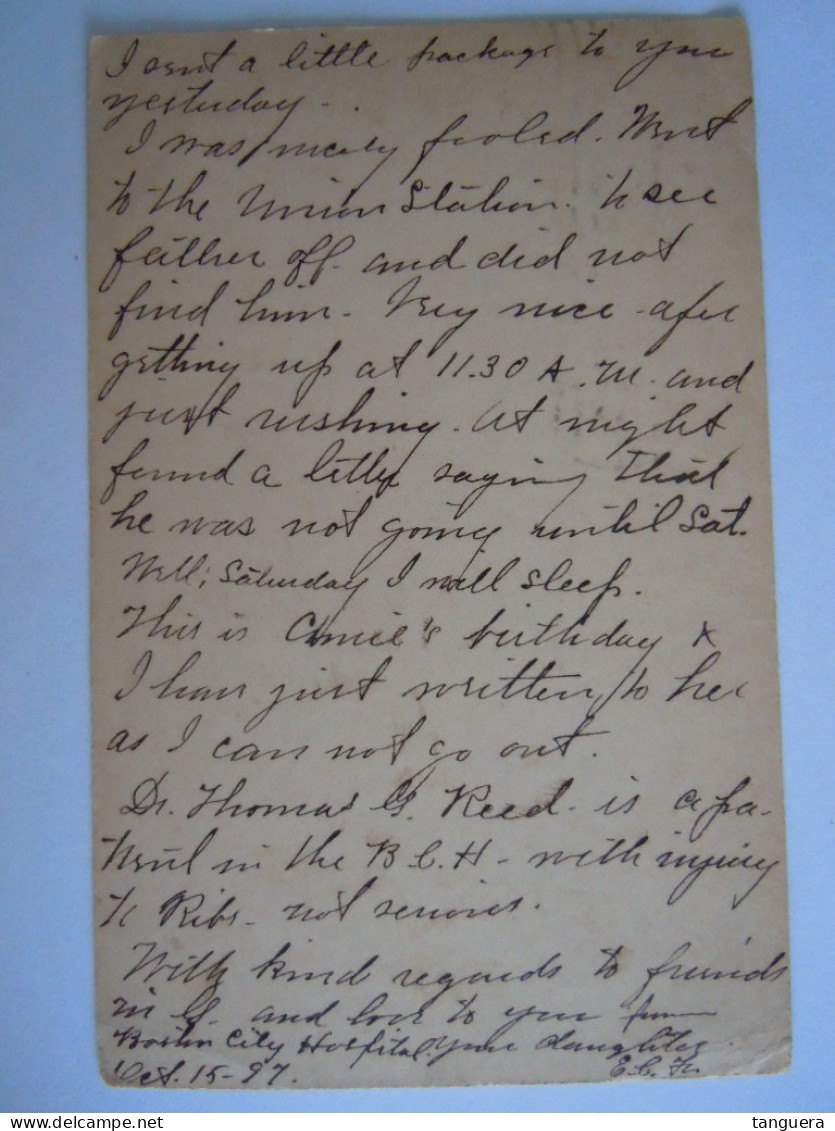 I sent a little package to you
yesterday.
I was nicely fooled. Went
to the Union Station. to see
father off. and did not
find him. Very nice after
getting up at 11.30 A.M. and
just rushing. At night
found a letter saying that
he was not going until Sat.
Well; Saturday I will sleep.
This is birthday &
I have just written to her
as I can not go out.
Dr. Thomas G. Reed. is a pa-
tient in the B.C.H. with injury
to Ribs. not serious.
With kind regards to friends
in G. and love to you from
Boston City Hospital. your daughter.
Oct. 15-97. E.C.
tanguera